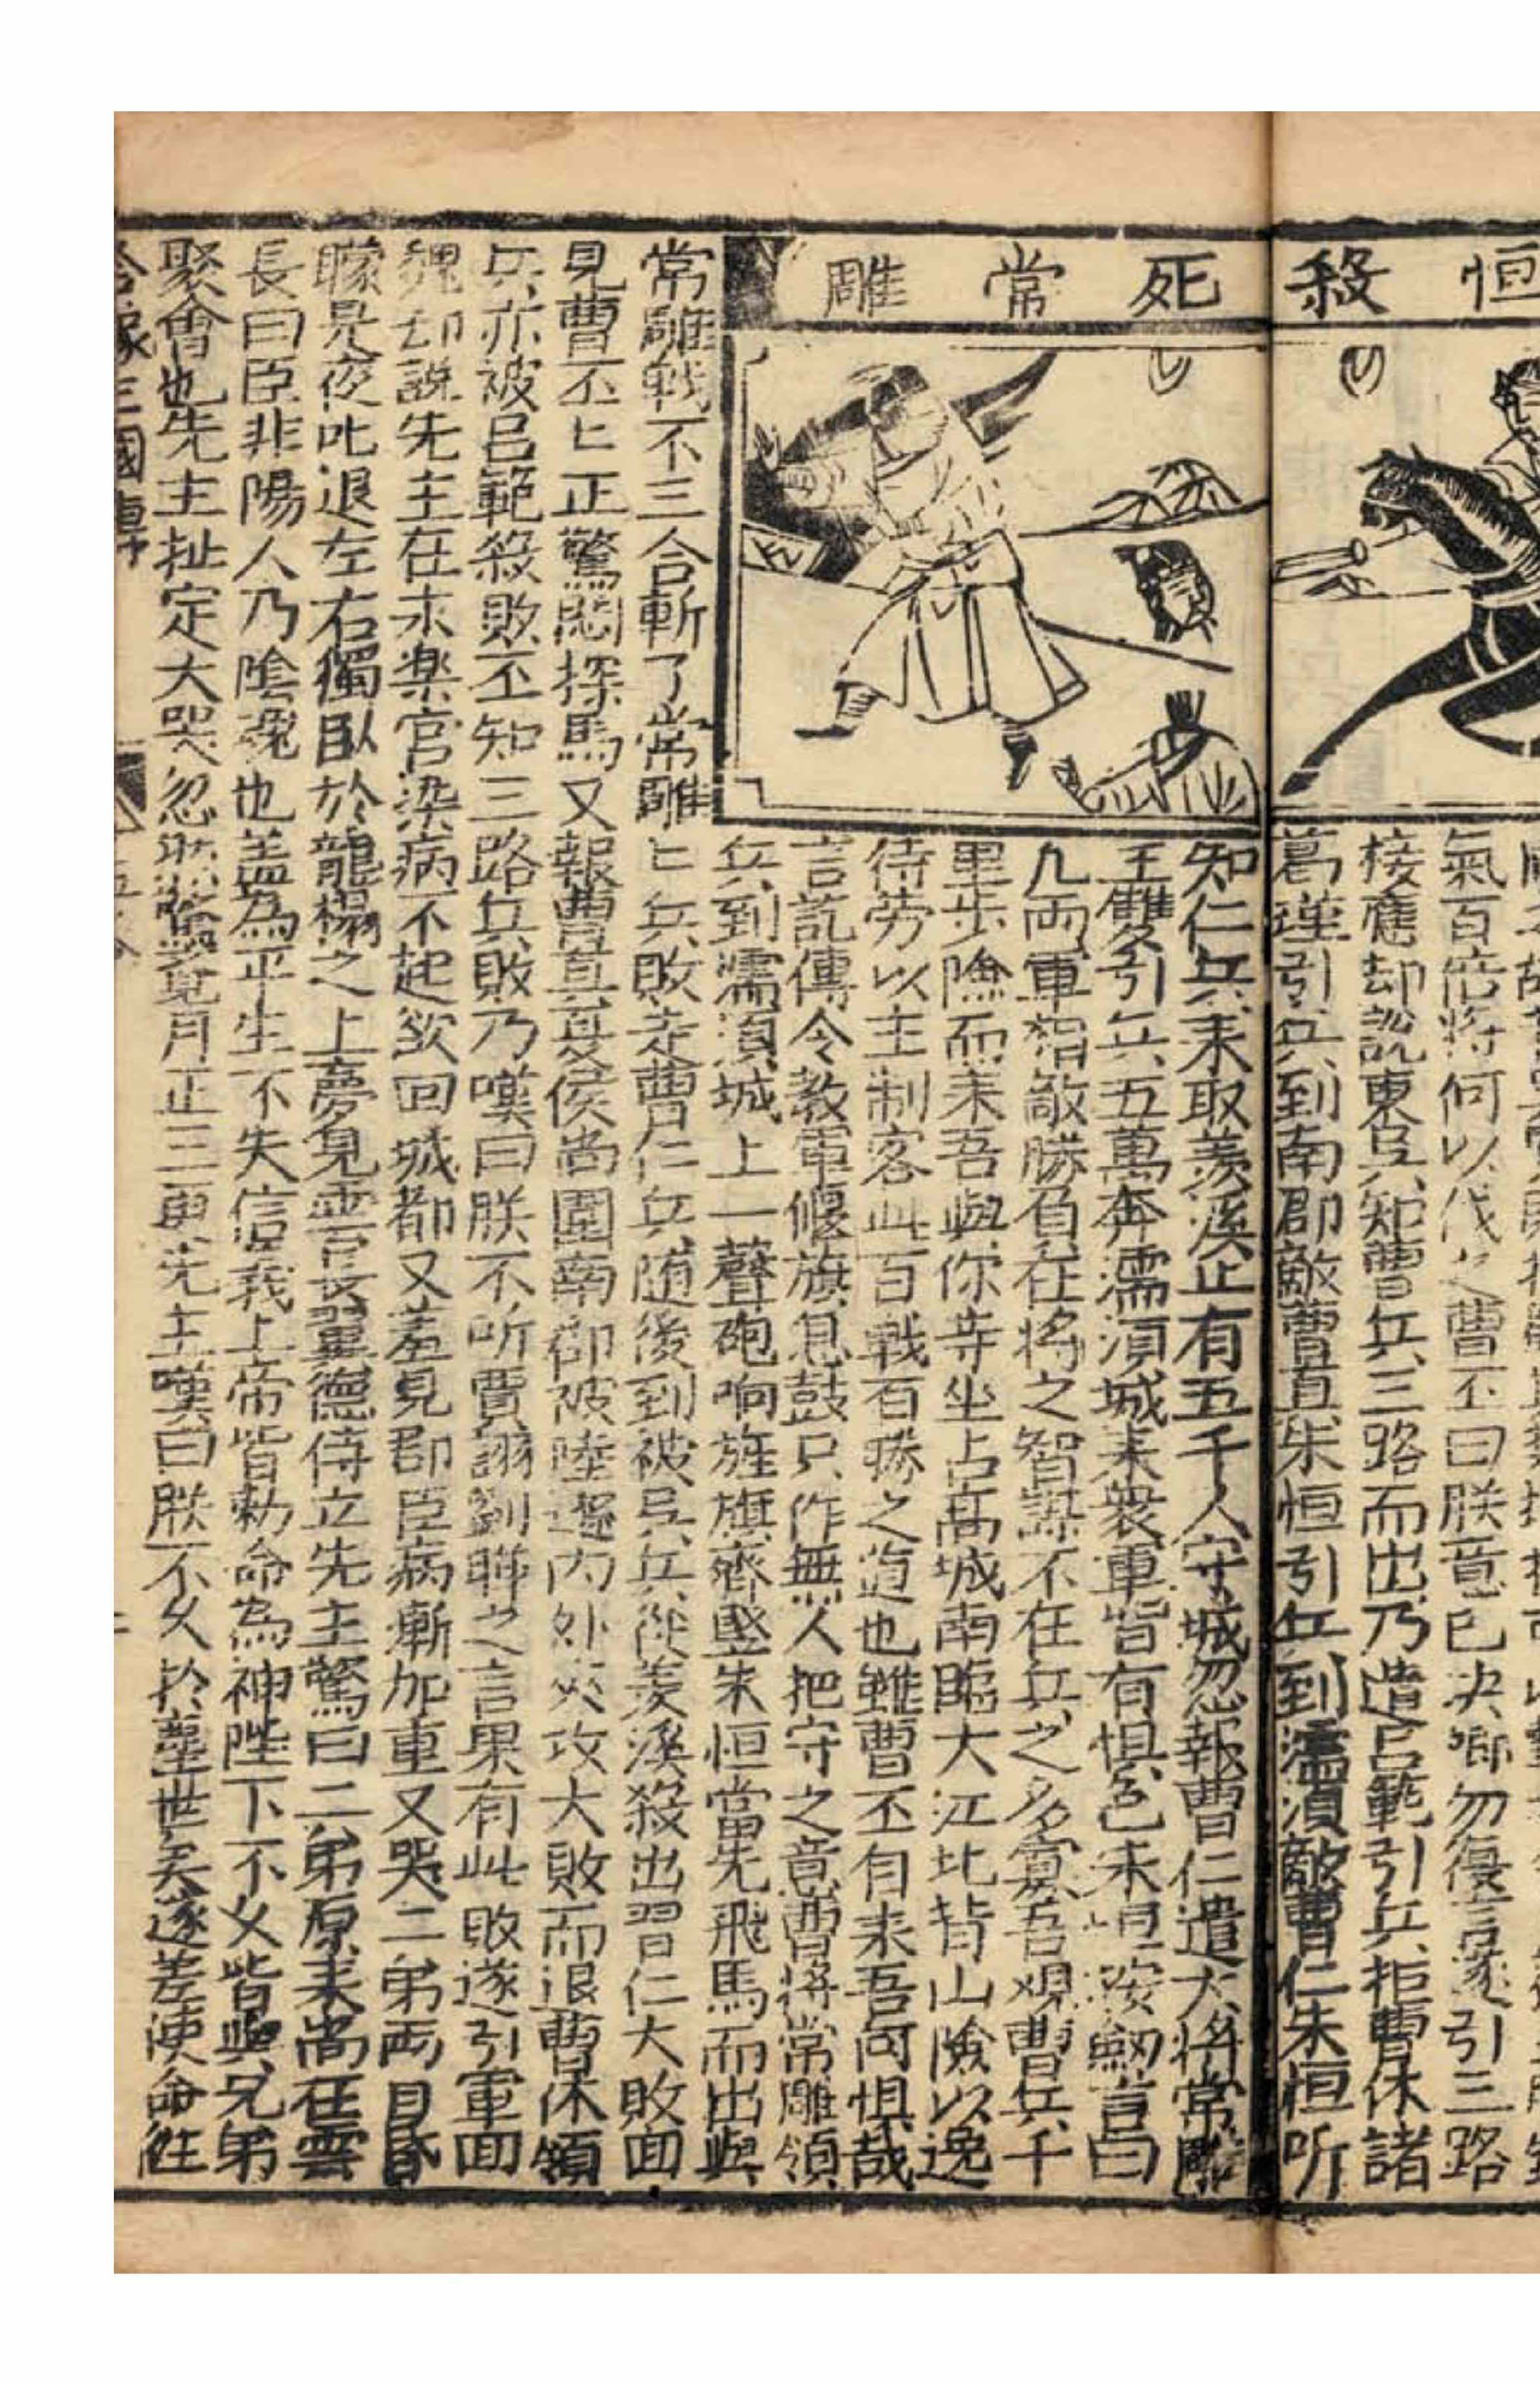 恒殺死常雕
氣百倍將何以伐之曹丕曰朕意已决卿勿復言遂引三路
接應却說東吳知曹兵三路而出乃遣呂範引兵拒曹休諸
葛瑾引兵到南郡敵曹真朱恒引兵到濡湏敵曹仁朱恒听
知仁兵来取羡溪止有五千人守城忽報曹仁遣大将常雕
王雙引兵五萬奔濡湏城来衆軍皆有惧色朱恒按劒言曰
凢两軍相敵勝負在将之智謀不在兵之多寡吾观曹兵千
里步险而来吾與你等坐占高城南臨大江北背山險以逸
待劳以主制客此百戰百勝之道也雖曹丕自来吾何惧哉
言訖傳令教軍偃旗息鼓只作無人把守之意曹将常雕領
兵到濡湏城上一聲砲响旌旗齊竪朱恒當先飛馬而出與
常雕戰不三合斬了常雕匕兵敗走曹仁兵随後到被吳兵從羡溪殺出曹仁大敗回
見曹丕匕正驚悶探馬又報曹真夏侯尚圍南郡被陸遜内外夾攻大敗而退曹休領
兵亦被呂範殺敗丕知三路兵敗乃嘆曰朕不听賈詡劉曄之言果有此敗遂引軍回
魏却說先主在永樂宫染病不起欲回城都又羞見郡臣病漸加重又哭二弟两目昏
矇是夜叱退左右獨臥於龍榻之上夢見雲長翼德侍立先主驚曰二弟原来尚在雲
長曰臣非陽人乃陰魂也盖為平生不失信義上帝皆勅命為神陛下不久皆與兄弟
聚會也先主扯定大哭忽然驚覚月正三更先主嘆曰朕不久於塵世矣遂差使命往
三國傳